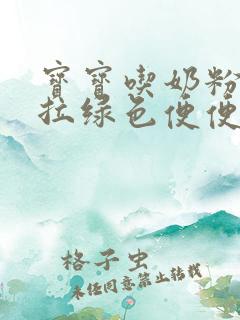 寳寳喫奶粉
拉綠色便便
格子虫
未经同意禁止转载